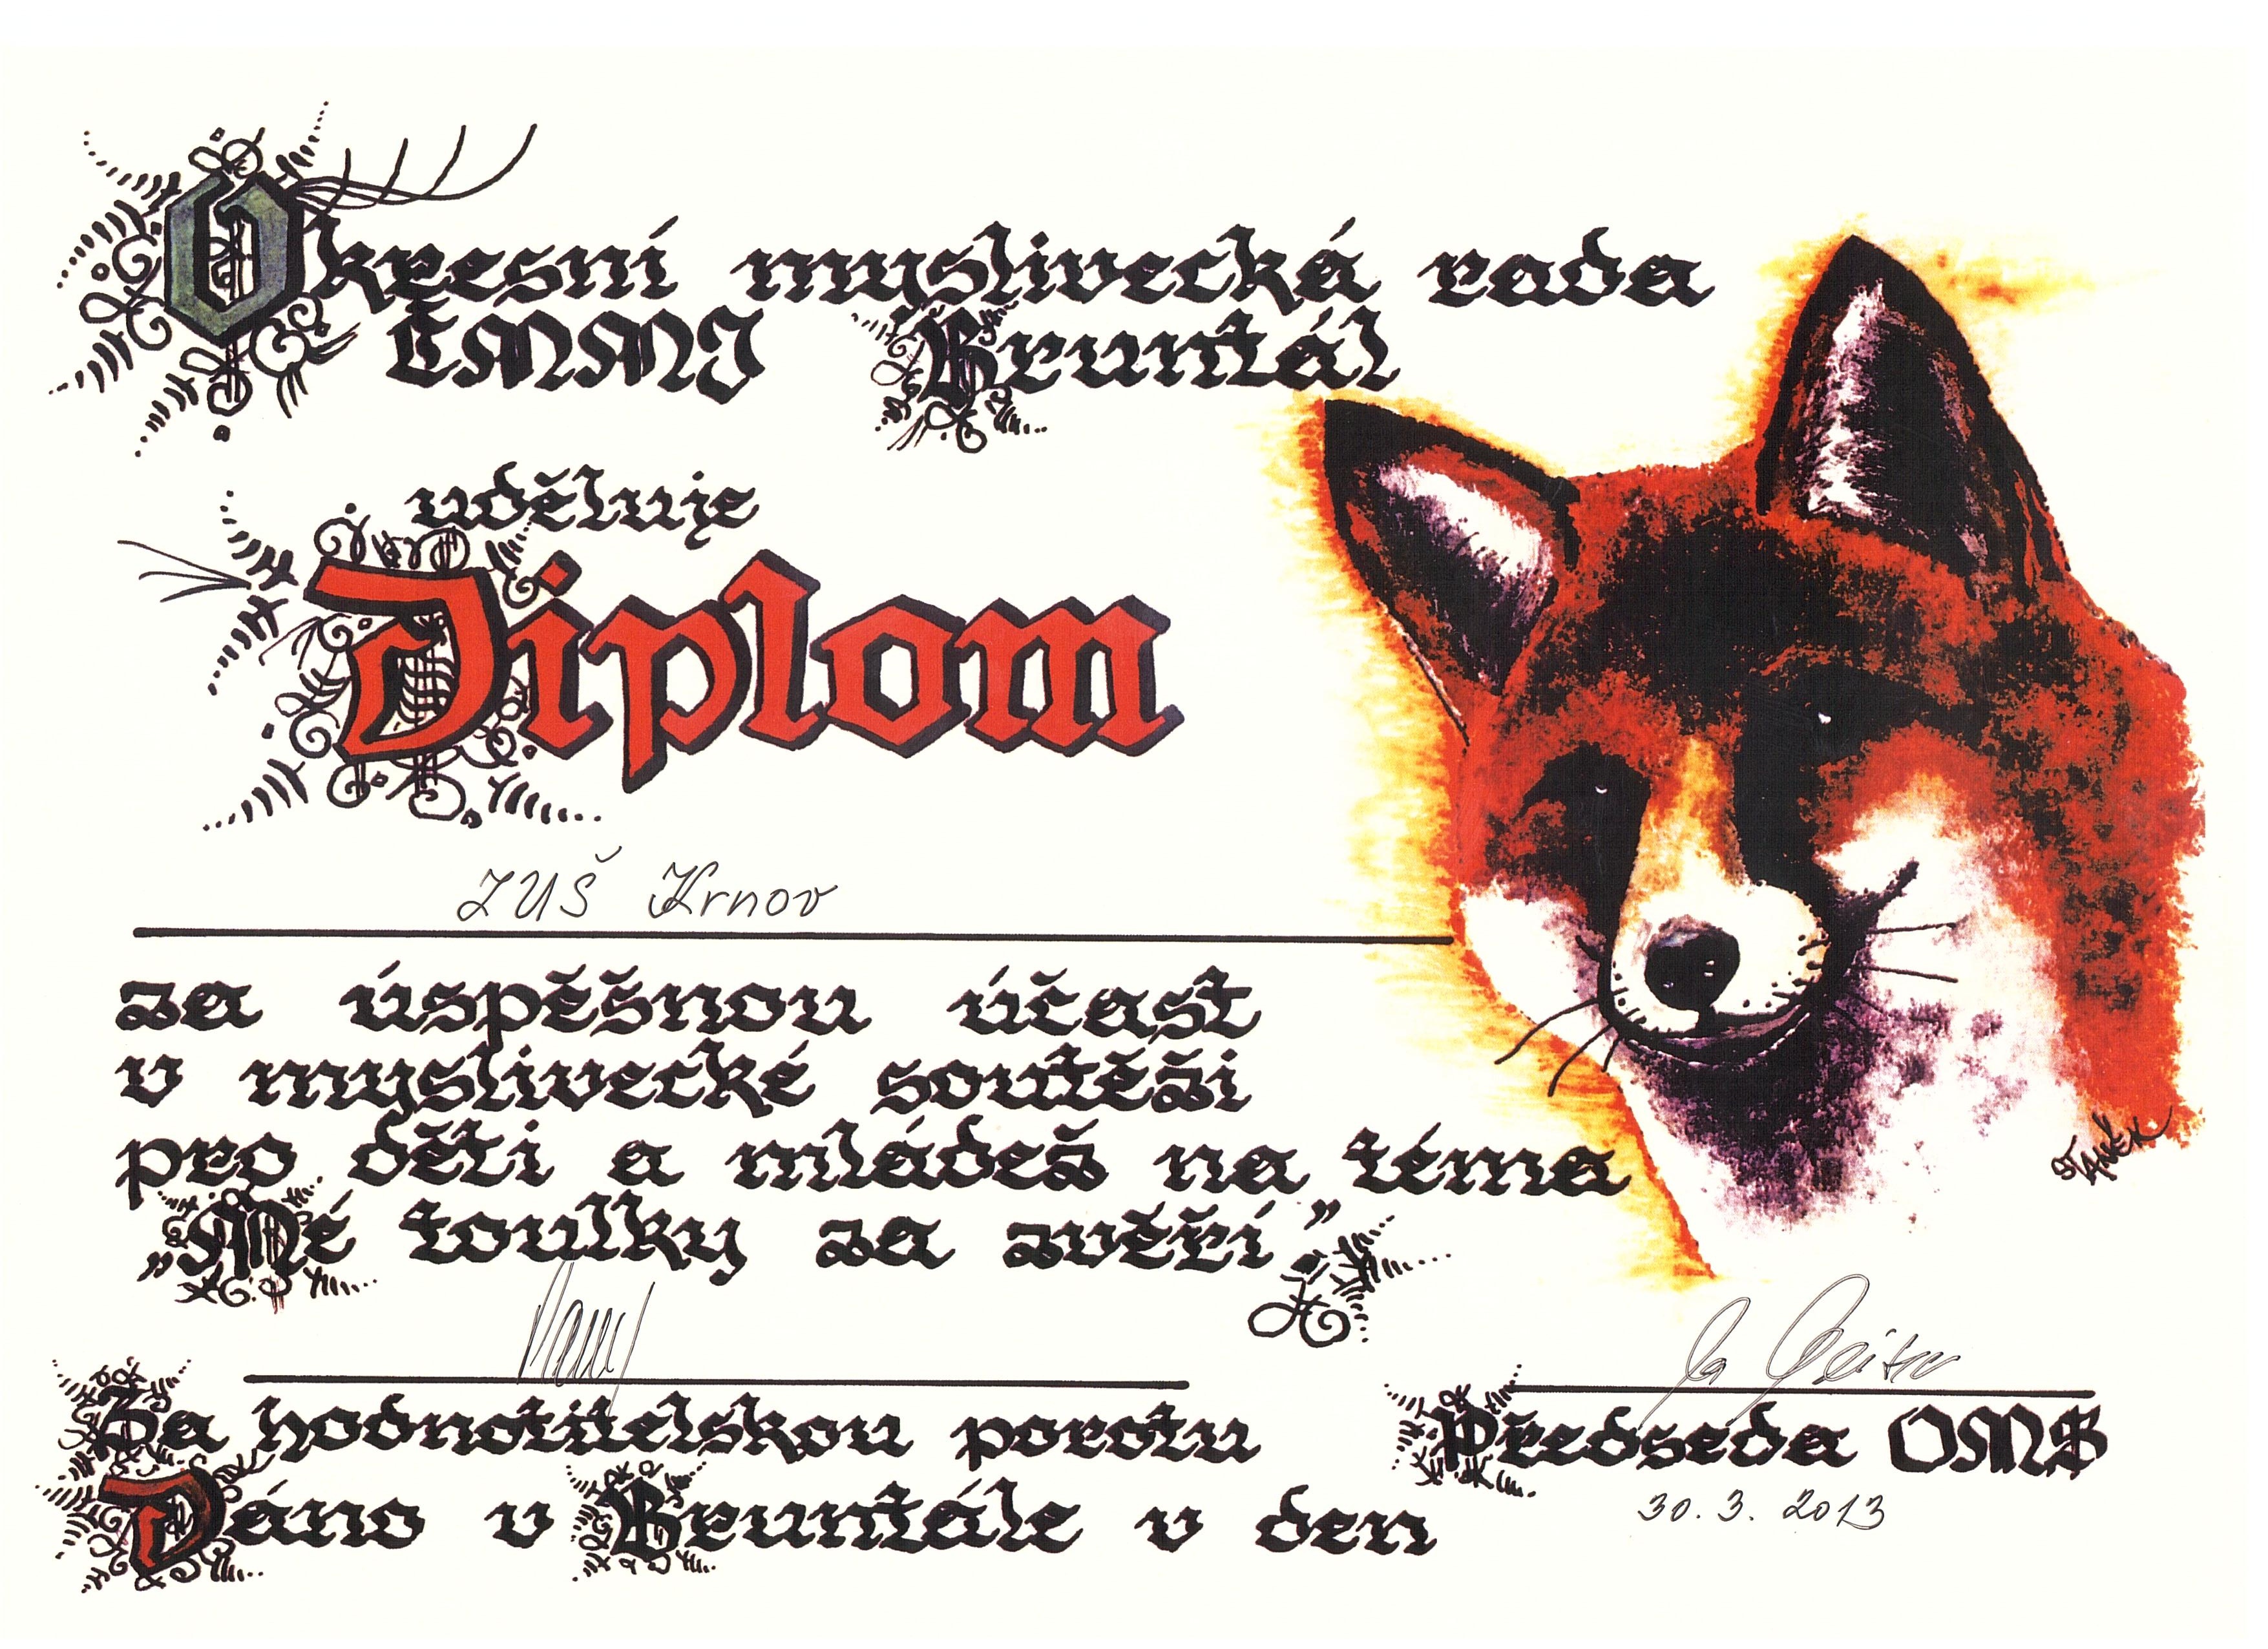 Okresní myslivecká rada
ČMMJ Bruntál
uděluje
Diplom
ZUŠ Krnov
za úspěšnou účast
v myslivecké soutěži
pro děti a mládež na téma
„Mé toulky za zvěří”
STANĚK
Za hodnotitelskou porotu
Předseda OMS
Dáno v Bruntále v den
30. 3. 2013